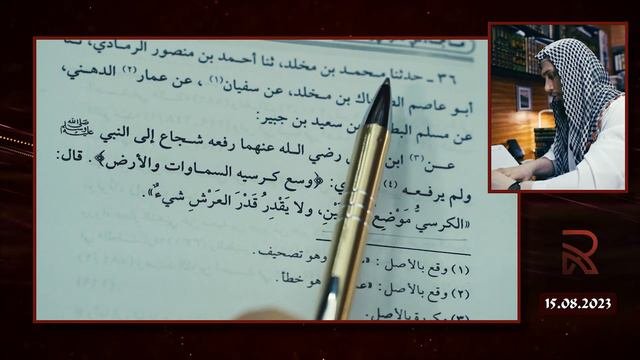 ٣٦ ـ حدثنا محمد بن مخلد، ثنا أحمد بن منصور الرمادي، ثنا
أبو عاصم بن مخلد، عن سفيان(١)، عن عمار(٢) الدهني،
عن مسلم بن سعيد بن جبير:
عن(٣) ابن رضي الله عنهما رفعه شجاع إلى النبي ﷺ
ولم يرفعه (٤) ﴿وسع كرسيه السماوات والأرض﴾. قال:
«الكرسيُّ مَوْضِع ولا يَقْدِرُ قَدْرَ العَرْشِ شيءٌ».
(١) وقع بالأصل: وهو تصحيف.
(٢) وقع بالأصل: هو خطأ.
(٣) بالأصل.
15.08.2023